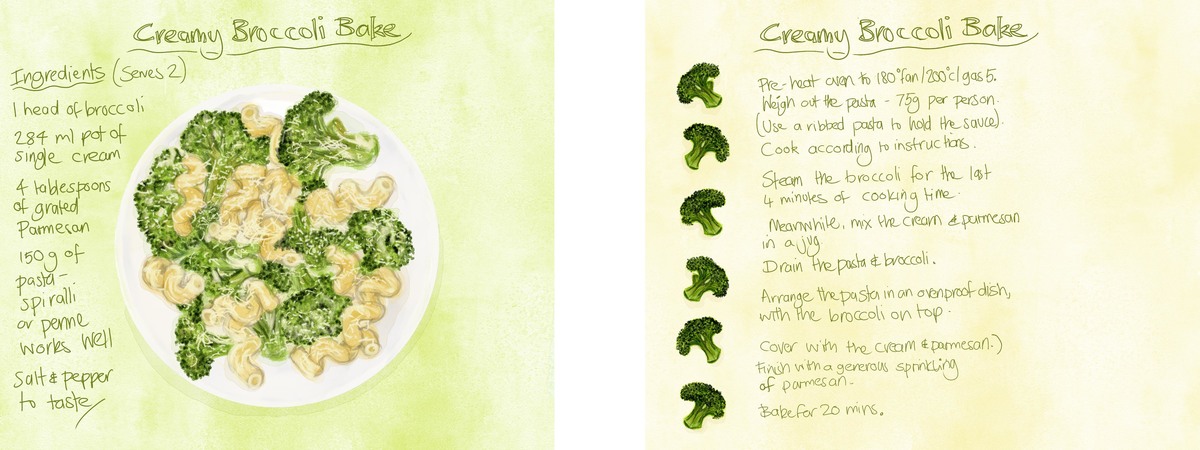 Creamy Broccoli Bake
Ingredients (Serves 2)
1 head of broccoli
284 ml pot of
single cream
4 tablespoons
of grated
Parmesan
150g of
pasta-
spiralli
or penne
works well
Salt & pepper
to taste
Creamy Broccoli Bake
Pre-heat oven to 180°fan/200°c/gas 5.
Weigh out the pasta - 75g per person.
(Use a ribbed pasta to hold the sauce).
Cook according to instructions.
Steam the broccoli for the last
4 minutes of cooking time.
Meanwhile, mix the cream & parmesan
in a jug.
Drain the pasta & broccoli.
Arrange the pasta in an ovenproof dish,
with the broccoli on top.
Cover with the cream & parmesan.)
Finish with a generous sprinkling
of parmesan.
Bake for 20 mins.